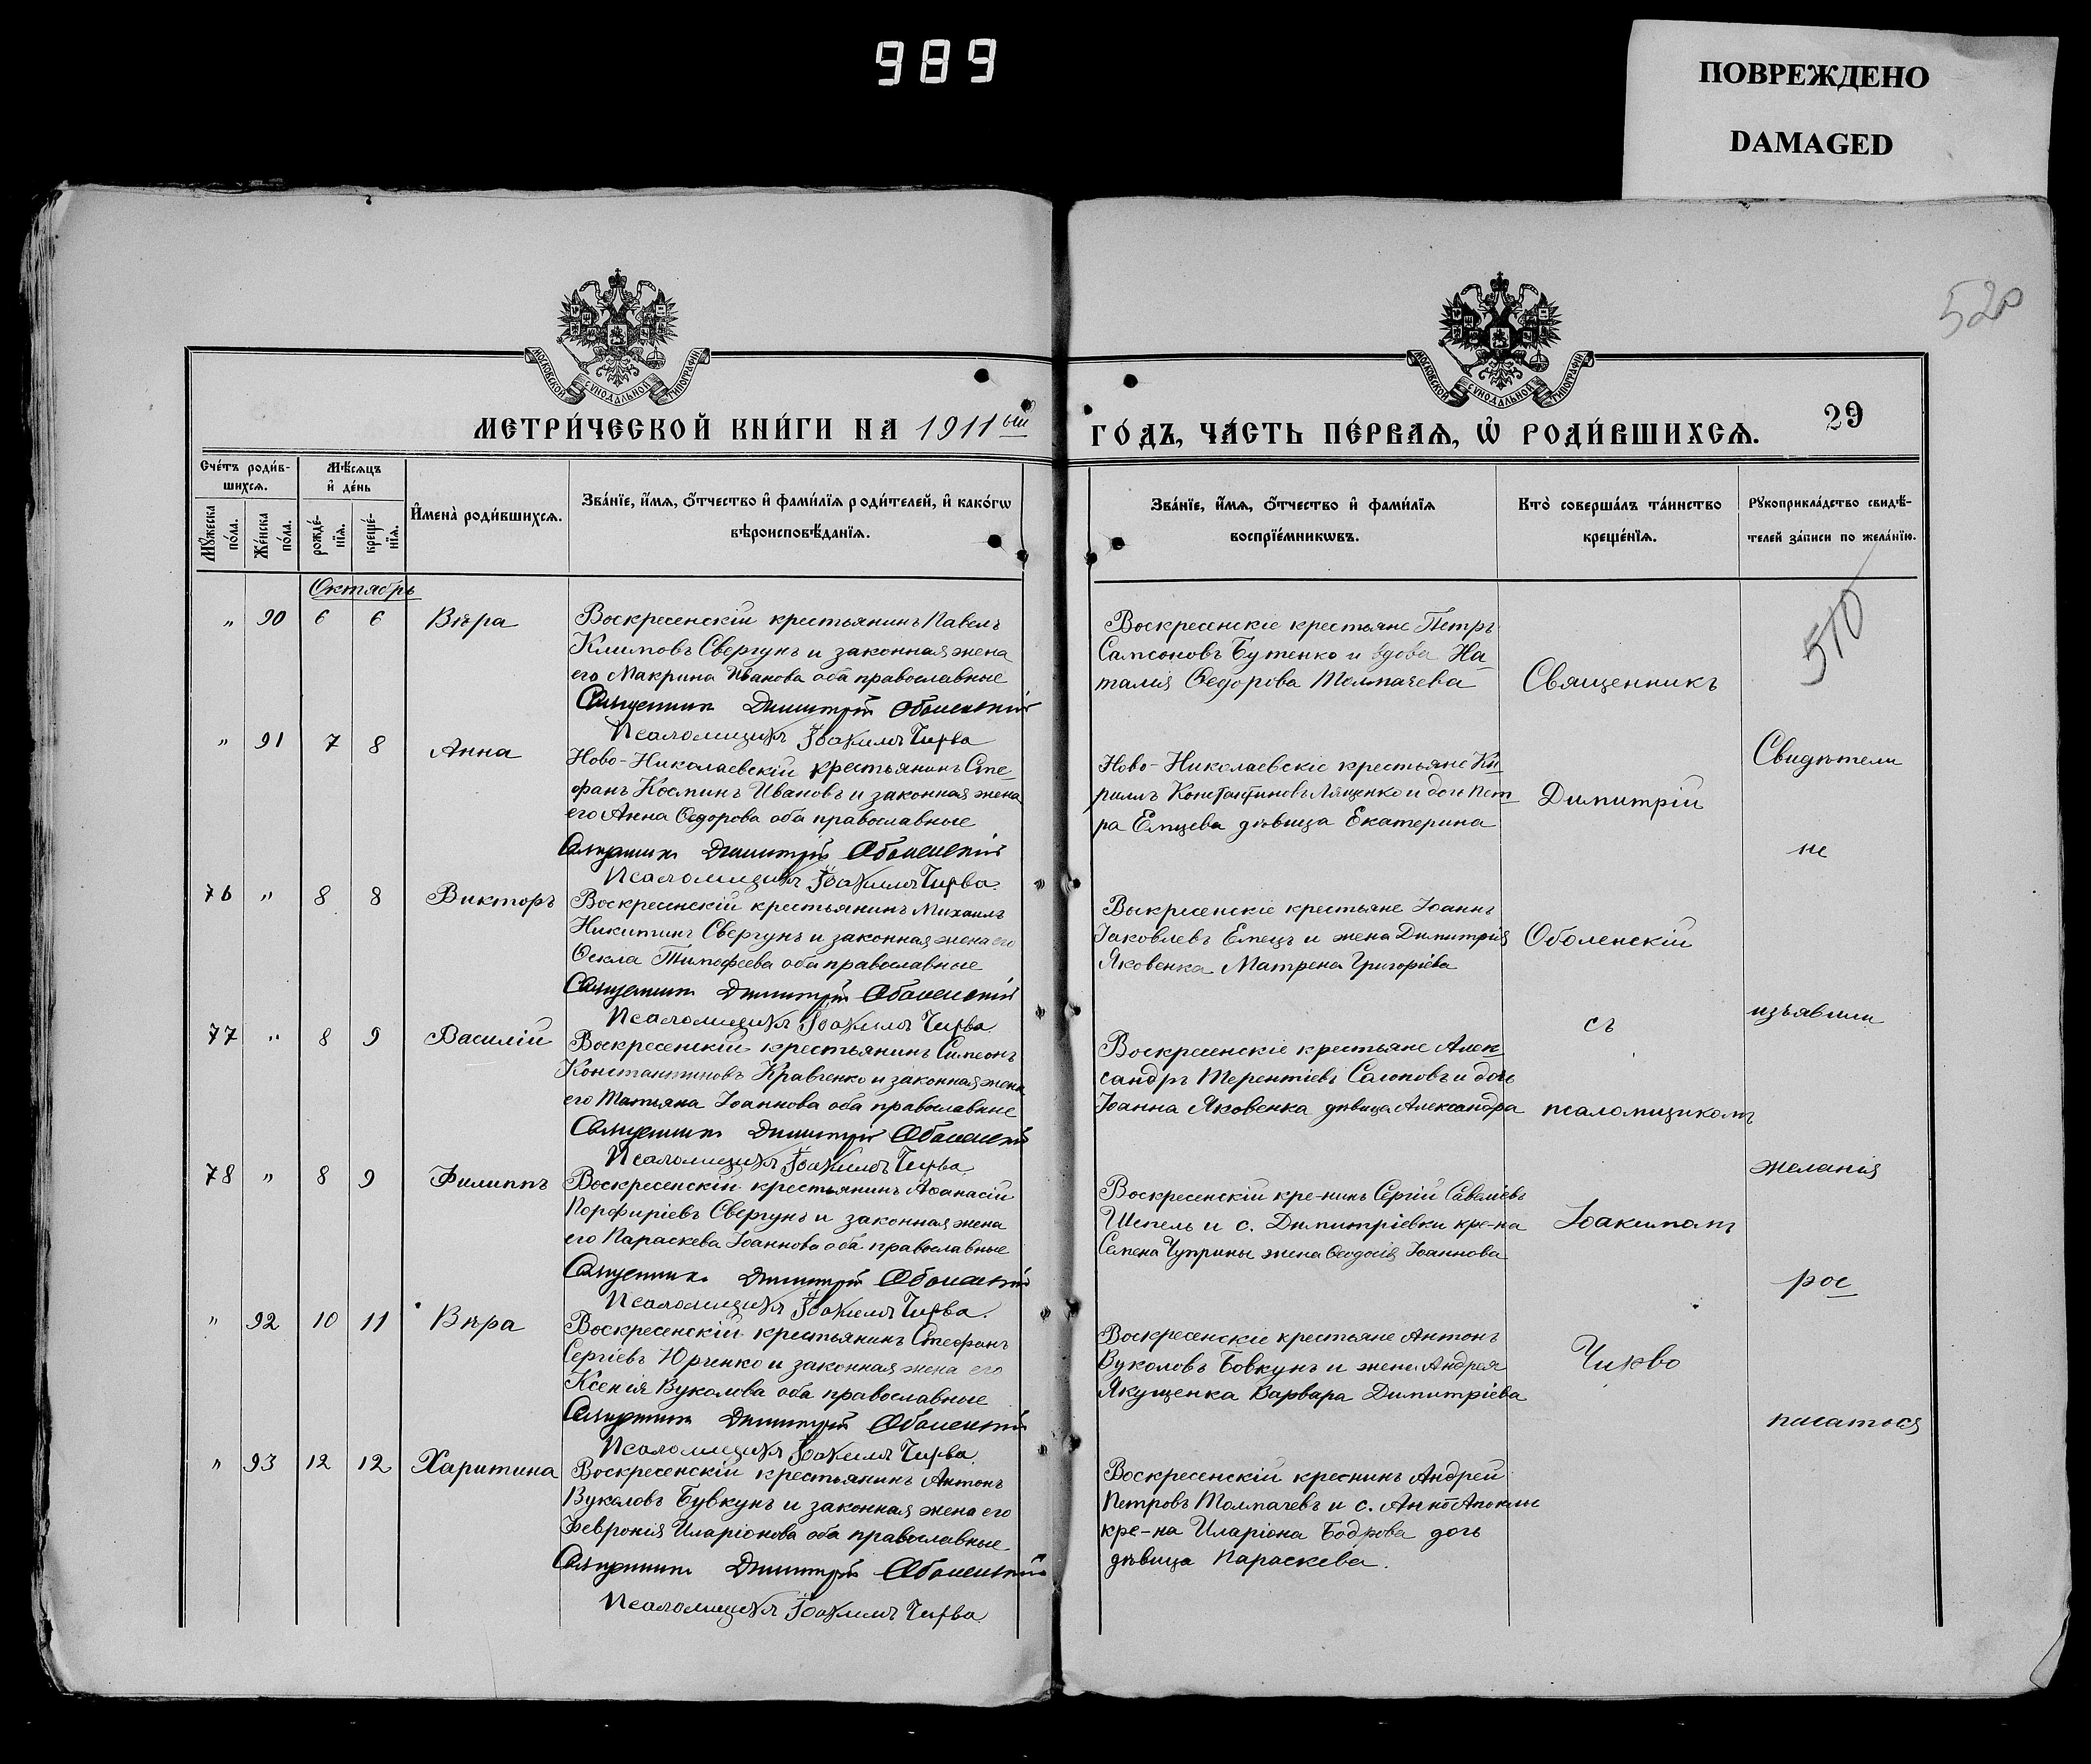 989
ПОВРЕЖДЕНО
DAMAGED
520
МОСКОВСКОЙ СѴНОДАЛЬНОЙ ТИПОГРАФІИ
МОСКОВСКОЙ СѴНОДАЛЬНОЙ ТИПОГРАФІИ
МЕТРИ́ЧЕСКОЙ КНИ́ГИ НА 1911ый ГО́ДЪ, ЧА́СТЬ ПЕ́РВАѦ, Ѡ҆ РОДИ́ВШИХСѦ. 29
Сче́тъ роди́в-
шихсѧ.
Мꙋ́жеска по́ла.
Же́нска по́ла.
Мѣ́сѧцъ
и҆ де́нь
рожде́-
нїѧ.
креще́-
нїѧ.
И҆мена̀ роди́вшихсѧ.
Зва́нїе, и҆́мѧ, ѻ҆́тчество и҆ фами́лїѧ роди́телей, и҆ како́гѡ
вѣроисповѣ́данїѧ.
Зва́нїе, и҆́мѧ, ѻ҆́тчество и҆ фами́лїѧ
воспрїе́мникѡвъ.
Кто̀ соверша́лъ та́инство
креще́нїѧ.
Рꙋкоприкла́дство свидѣ́-
телей за́писи по жела́нїю.
Октябрь
" 90 6 6 Вѣра
Воскресенскій крестьянинъ Павелъ
Климовъ Свергунъ и законная жена
его Макрина Иванова оба православные
Священникъ Димитрій Оболенскій
Псаломщикъ Іоакимъ Чирва
Воскресенскіе крестьяне Петръ
Самсоновъ Бутенко и вдова На-
талія Ѳедорова Толмачева
510
" 91 7 8 Анна
Ново-Николаевскій крестьянинъ Сте-
фанъ Косминъ Ивановъ и законная жена
его Анна Ѳедорова оба православные
Священникъ Димитрій Оболенскій
Псаломщикъ Іоакимъ Чирва
Ново-Николаевскіе крестьяне Ки-
риллъ Константиновъ Лященко и дочь Пет-
ра Емцева дѣвица Екатерина
76 " 8 8 Викторъ
Воскресенскій крестьянинъ Михаилъ
Никитинъ Свергунъ и законная жена его
Ѳекла Тимофеева оба православные
Священникъ Димитрій Оболенскій
Псаломщикъ Іоакимъ Чирва
Воскресенскіе крестьяне Іоаннъ
Іаковлевъ Емецъ и жена Димитрія
Яковенка Матрена Григоріева
77 " 8 9 Василій
Воскресенскій крестьянинъ Симеонъ
Константиновъ Кравченко и законная жена
его Татьяна Іоаннова оба православные
Священникъ Димитрій Оболенскій
Псаломщикъ Іоакимъ Чирва
Воскресенскіе крестьяне Алек-
сандръ Терентіевъ Сапоновъ и дочь
Іоанна Яковенка дѣвица Александра
78 " 8 9 Филиппъ
Воскресенскій крестьянинъ Аѳанасій
Порфиріевъ Свергунъ и законная жена
его Параскева Іоаннова оба православные
Священникъ Димитрій Оболенскій
Псаломщикъ Іоакимъ Чирва
Воскресенскій кре-нинъ Сергій Савеліевъ
Шепель и с. Димитріевки кре-на
Семена Чуприны жена Ѳеодосія Іоаннова
" 92 10 11 Вѣра
Воскресенскій крестьянинъ Стефанъ
Сергіевъ Юрченко и законная жена его
Ксенія Вуколова оба православные
Священникъ Димитрій Оболенскій
Псаломщикъ Іоакимъ Чирва
Воскресенскіе крестьяне Антонъ
Вуколовъ Бовкунъ и жена Андрея
Якущенка Варвара Димитріева
" 93 12 12 Харитина
Воскресенскій крестьянинъ Антонъ
Вуколовъ Бувкунъ и законная жена его
Февронія Иларіонова оба православные
Священникъ Димитрій Оболенскій
Псаломщикъ Іоакимъ Чирва
Воскресенскій креснинъ Андрей
Петровъ Толмачевъ и с.
кре-на Иларіона Бодрова дочь
дѣвица Параскева.
Священникъ
Димитрій
Оболенскій
съ
псаломщикомъ
Іоакимомъ
Чирво
Свидѣтели
не
изъявили
желанія
рос-
писаться